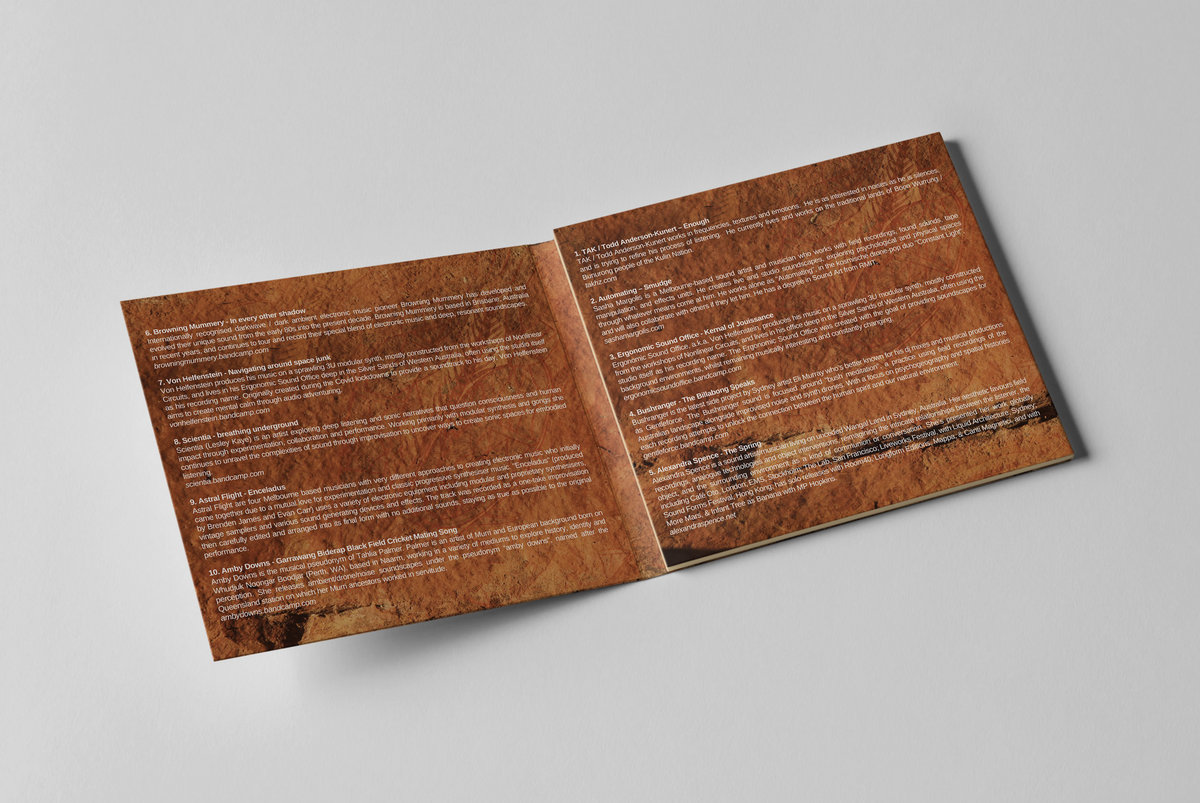 6. Browning Mummery - In every other shadow
Internationally recognised darkwave / dark ambient electronic music pioneer Browning Mummery has developed and
evolved their unique sound from the early 80s into the present decade. Browning Mummery is based in Brisbane, Australia
in recent years, and continues to tour and record their special blend of electronic music and deep, resonant soundscapes.
browningmummery.bandcamp.com
7. Von Helfenstein - Navigating around space junk
Von Helfenstein produces his music on a sprawling 3U modular synth, mostly constructed from the workshops of Nonlinear
Circuits, and lives in his Ergonomic Sound Office deep in the Silver Sands of Western Australia, often using the studio itself
as his recording name. Originally created during the Covid lockdowns to provide a soundtrack to his day, Von Helfenstein
aims to create mental calm through audio adventuring.
vonhelfenstein.bandcamp.com
8. Scientia - breathing underground
Scientia (Lesley Kaye) is an artist exploring deep listening and sonic narratives that question consciousness and human
impact through experimentation, collaboration and performance. Working primarily with modular synthesis and gongs she
continues to unravel the complexities of sound through improvisation to uncover ways to create sonic spaces for embodied
listening.
scientia.bandcamp.com
9. Astral Flight - Enceladus
Astral Flight are four Melbourne based musicians with very different approaches to creating electronic music who initially
came together due to a mutual love for experimentation and classic progressive synthesiser music. "Enceladus" (produced
by Brenden James and Evan Carr) uses a variety of electronic equipment including modular and proprietary synthesisers,
vintage samplers and various sound generating devices and effects. The track was recorded as a one-take improvisation,
then carefully edited and arranged into its final form with no additional sounds, staying as true as possible to the original
performance.
10. Amby Downs - Garrawang Biderap Black Field Cricket Mating Song
Amby Downs is the musical pseudonym of Tahlia Palmer. Palmer is an artist of Murri and European background born on
Whudjuk Noongar Boodjar (Perth, WA), based in Naarm, working in a variety of mediums to explore history, identity and
perception. She releases ambient/drone/noise soundscapes under the pseudonym "amby downs", named after the
Queensland station on which her Murri ancestors worked in servitude.
ambydowns.bandcamp.com
1. TAK / Todd Anderson-Kunert – Enough
TAK / Todd Anderson-Kunert works in frequencies, textures and emotions. He is as interested in noises as he is silences,
and is trying to refine his process of listening. He currently lives and works on the traditional lands of Boon Wurrung /
Bunurong people of the Kulin Nation.
takhz.com
2. Automating – Smudge
Sasha Margolis is a Melbourne-based sound artist and musician who works with field recordings, found sounds, tape
manipulation, and effects units. He creates live and studio soundscapes, exploring psychological and physical spaces
through whatever means come at him. He works alone as "Automating", in the kosmische drone-pop duo "Constant Light",
and will also collaborate with others if they let him. He has a degree in Sound Art from RMIT.
sashamargolis.com
3. Ergonomic Sound Office - Kernal of Jouissance
Ergonomic Sound Office, a.k.a. Von Helfenstein, produces his music on a sprawling 3U modular synth, mostly constructed
from the workshops of Nonlinear Circuits, and lives in his office deep in the Silver Sands of Western Australia, often using the
studio itself as his recording name. The Ergonomic Sound Office was created with the goal of providing soundscapes for
background environments, whilst remaining musically interesting and constantly changing.
ergonomicsoundoffice.bandcamp.com
4. Bushranger - The Billabong Speaks
Bushranger is the latest side project by Sydney artist Eli Murray who's better known for his dub mixes and musical productions
as Gentleforce. The Bushranger sound is focused around "bush meditation", a practice using field recordings of the
Australian landscape alongside improvised noise and synth drones. With a focus on psychogeography and spatial histories
each recording attempts to unlock the connection between the human spirit and our natural environment.
gentleforce.bandcamp.com
5. Alexandra Spence - The Spring
Alexandra Spence is a sound artist & musician living on unceded Wangal Land in Sydney, Australia. Her aesthetic favours field
recordings, analogue technologies and object interventions, reimagining the intricate relationships between the listener, the
object, and the surrounding environment as a kind of communion or conversation. She's presented her work globally
including Café Oto, London; EMS, Stockholm; The Lab, San Francisco; Liveworks Festival, with Liquid Architecture, Sydney;
Sound Forms Festival, Hong Kong; has solo releases with Room40, Longform Editions, Mappa, & Canti Magnetici, and with
More Mars, & Infant Tree as Banana with MP Hopkins.
alexandraspence.net